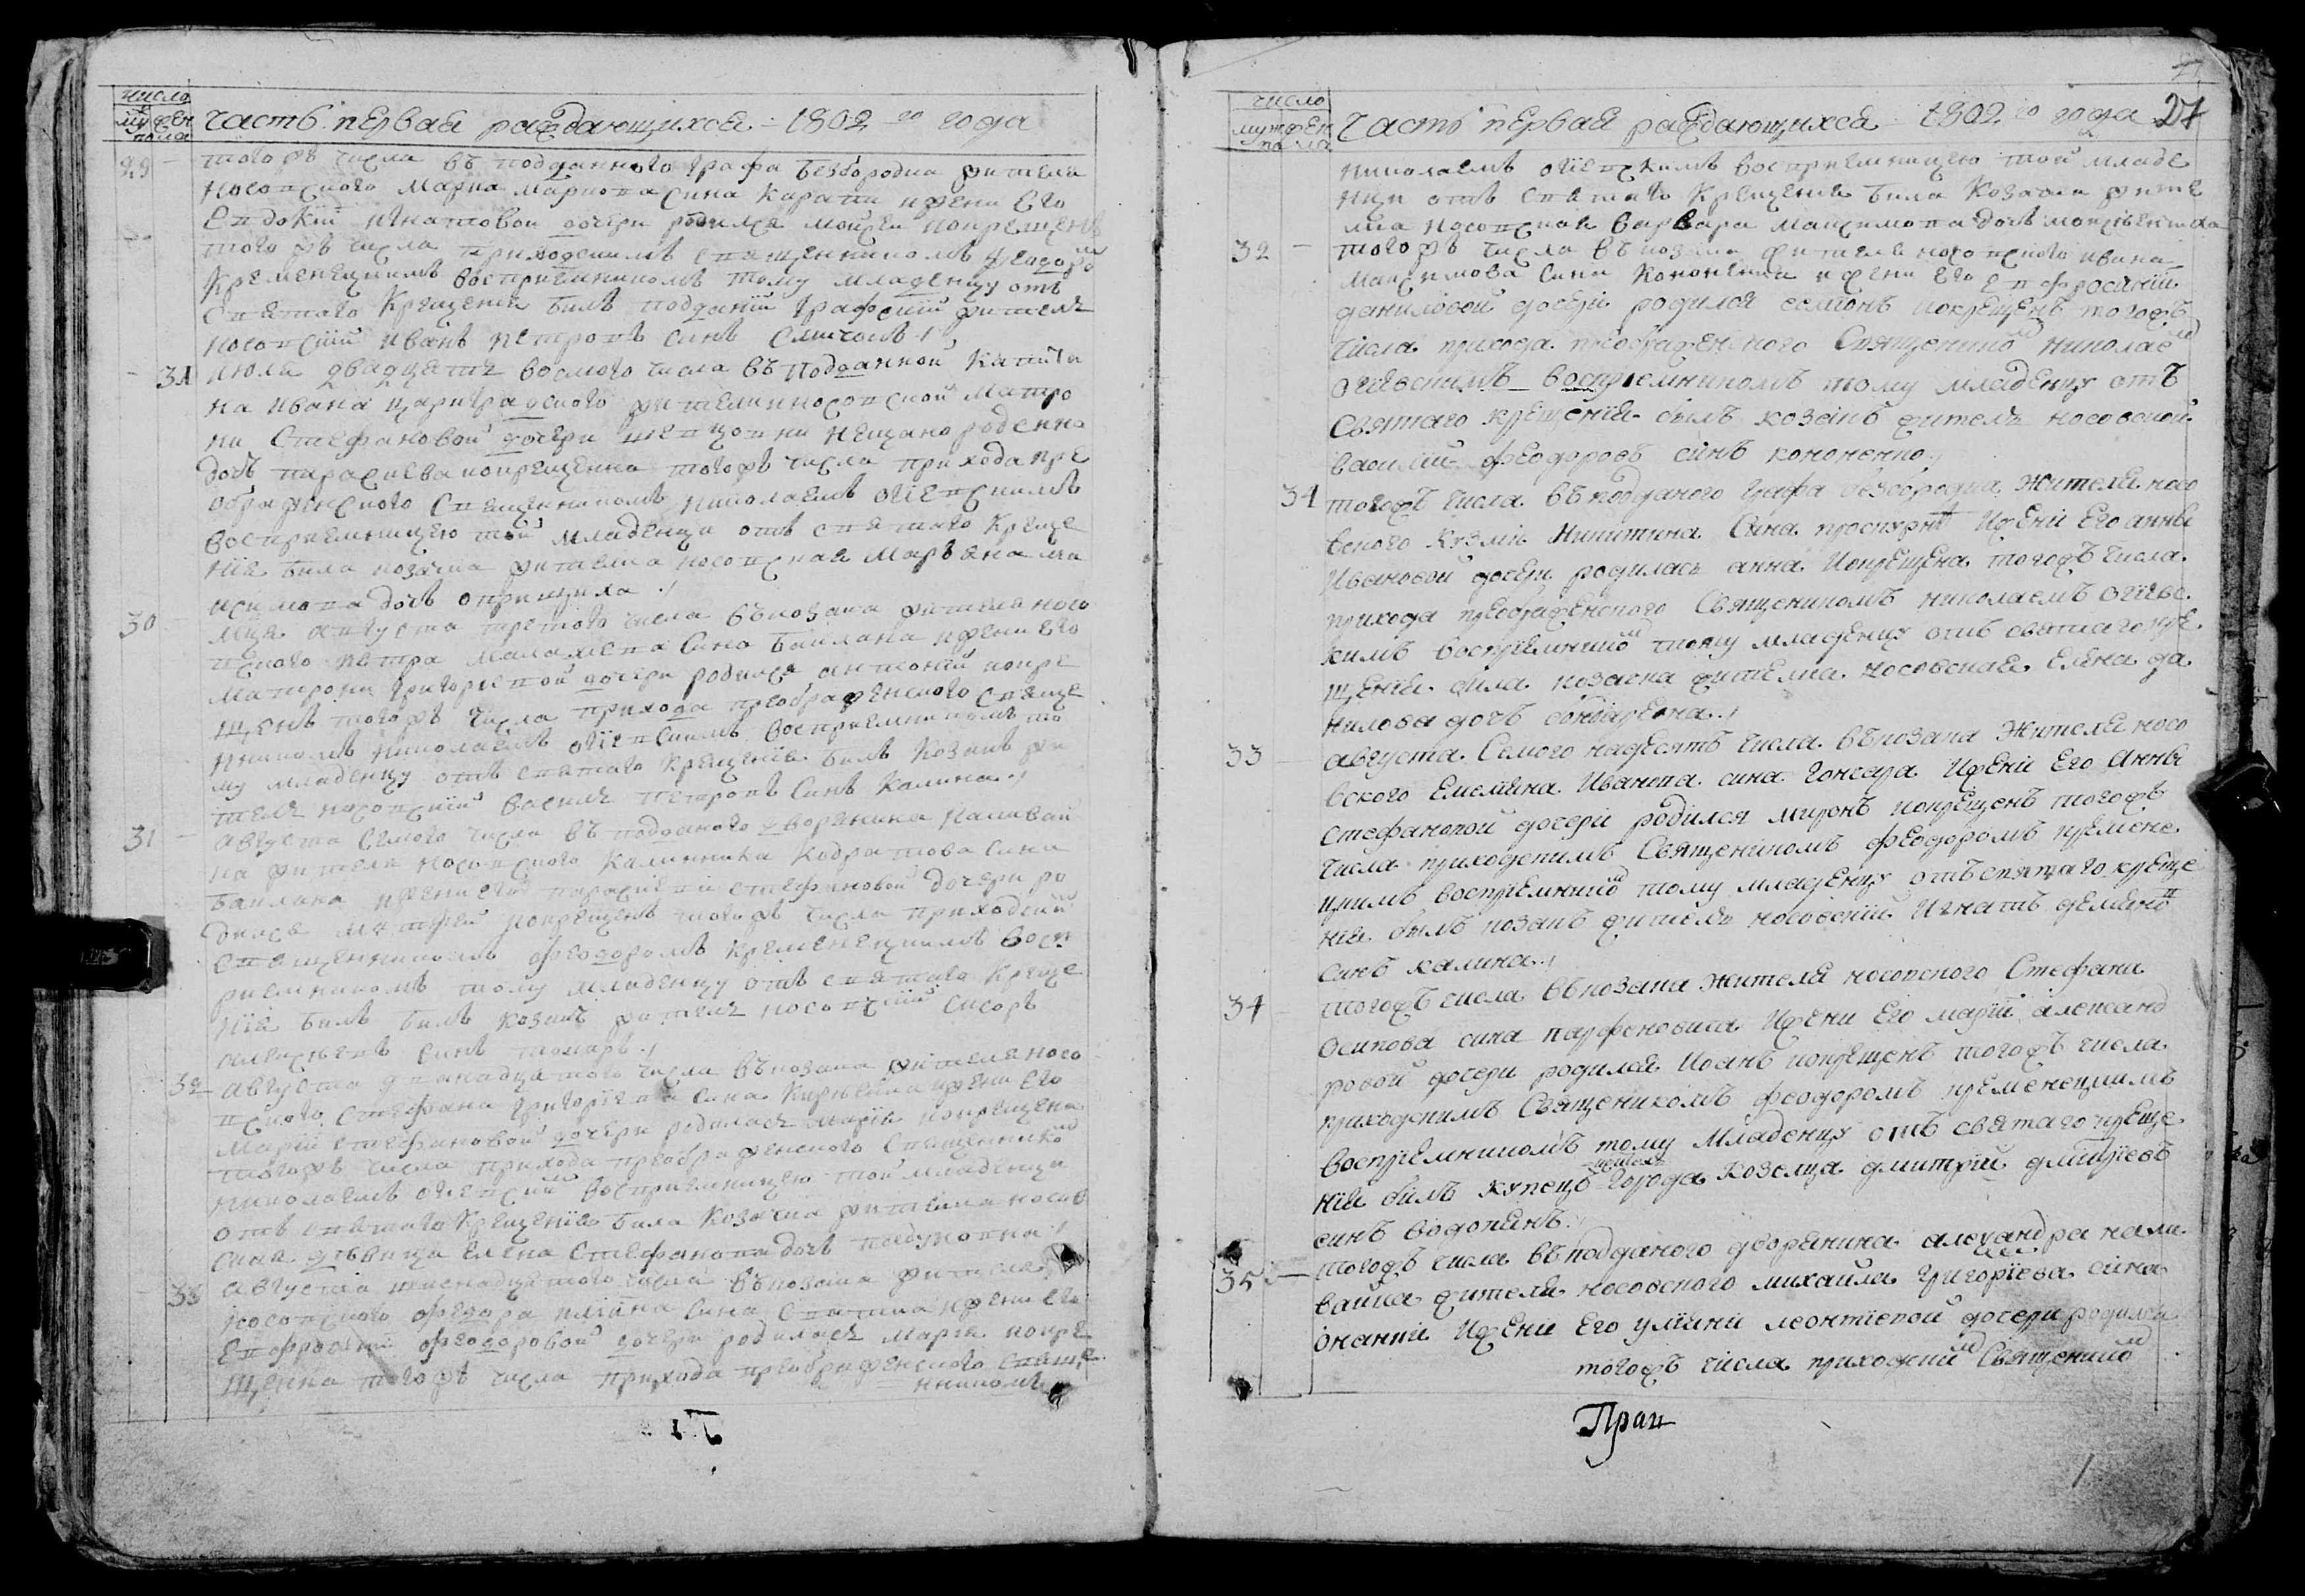 число
муж жен
пола
часть первая раждающихся 1802 го года
29
тогожъ числа въ подданного графа безбородка жителя
носовского марка маркова сина карати и жени его
евдокіи игнатовой дочери родился моѵсей и окрещенъ
тогожъ числа приходскимъ священникомъ феодором
кременецкимъ восприемникомъ тому младенцу отъ
святаго крещенія билъ подданій графскій житель
носовскій иванъ петровъ синъ
31
июля двадцять восмого числа въ подданной капита
на ивана цариградского жителки носовской матро
ни стефановой дочери нещано рожденна
дочь параскева и окрещенна тогожъ числа прихода пре
ображенского священникомъ николаемъ огіевскимъ
восприемницею той младенци отъ святаго креще
нія била козачка жителка носовская маріяна ма
ксимова дочь оприщиха
30
мця августа третого числа въ козака жителя носо
вского петра малахіева сина баклана и жени его
матрони григориевой дочери родился антоній и окре
щенъ тогожъ числа прихода преображенского свяще
нникомъ николаемъ огіевскимъ восприемникомъ то
му младенцу отъ святаго крещенія билъ козакъ жи
тель носовскій василь петровъ синъ калина
31
августа семого числа въ подданого дворянина наливай
ка жителя носовского калинника кодратова сина
баклана и жени его параскевіи стефановой дочери ро
дился матфей и окрещенъ тогожъ числа приходскимъ
священникомъ феодоромъ кременецкимъ восп
риемникомъ тому младенцу отъ святаго креще
нія билъ билъ козакъ житель носовскій сидоръ
алексіевъ синъ токарь
32
августа двянадцатого числа въ козака жителя носо
вского стефана григоріева сина и жени его
маріи стефановой дочери родилась марія и окрещена
тогожъ числа прихода преображенского священником
николаемъ огіевским восприемницею той младенци
отъ святаго крещенія била козачка жителка носов
ская дѣвица елена стефанова дочь
33
августа числа въ козака жителя
носовского феодора сина и жени его
евфросиніи феодоровой дочери родилась марія и окре
щенна тогожъ числа прихода преображенского свяще
нникомъ
число
муж жен
пола
часть первая раждающихся 1802 го года
27
николаемъ огіевскимъ восприемницею той младе
нци отъ святаго крещенія била козачка жите
лка носовская варвара максимова дочь
32
тогожъ числа въ козака жителя носовского ивана
максимова сина кононенка и жени его евфросиніи
даниловой дочери родился семіонъ и окрещенъ тогожъ
числа прихода преображенского священником николаем
огіевскимъ восприемникомъ тому младенцу отъ
святаго крещенія билъ козакъ житель носовской
василій феодоровъ синъ кононенко
34
тогожъ числа въ подданого графа безбородка жителя носо
вского кузми никитина сина проскурнѣ и жени его анни
ивановой дочери родилась анна и окрещена тогожъ числа
прихода преображенского священикомъ николаемъ огіевс
кимъ восприемником тому младенцу отъ святаго кре
щенія била козачка жителка носовская елена да
нилова дочь бондарена
33
августа семого надесять числа въ козака жителя носо
вского емеліяна иванова сина гончара и жени его анны
стефановой дочери родился миронъ и окрещенъ тогожъ
числа приходскимъ священикомъ феодоромъ кремене
цкимъ восприемником тому младенцу отъ святаго креще
нія билъ козакъ житель носовскій игнатъ деміянов
синъ калина
34
тогожъ числа въ козака жителя носовского стефана
осипова сина парфеновича и жени его маріи александ
ровой дочери родился иоанъ и окрещенъ тогожъ числа
приходскимъ священикомъ феодоромъ кременецкимъ
восприемникомъ тому младенцу отъ святаго креще
нія билъ купецъ житель города козелца дмитрій дмитріевъ
синъ водопянъ
35
тогожъ числа въ подданого дворянина александра нали
вайка жителя носовского михайла григоріева сина
и жени его уліяни леонтіевой дочери родился
тогожъ числа приходским священиком